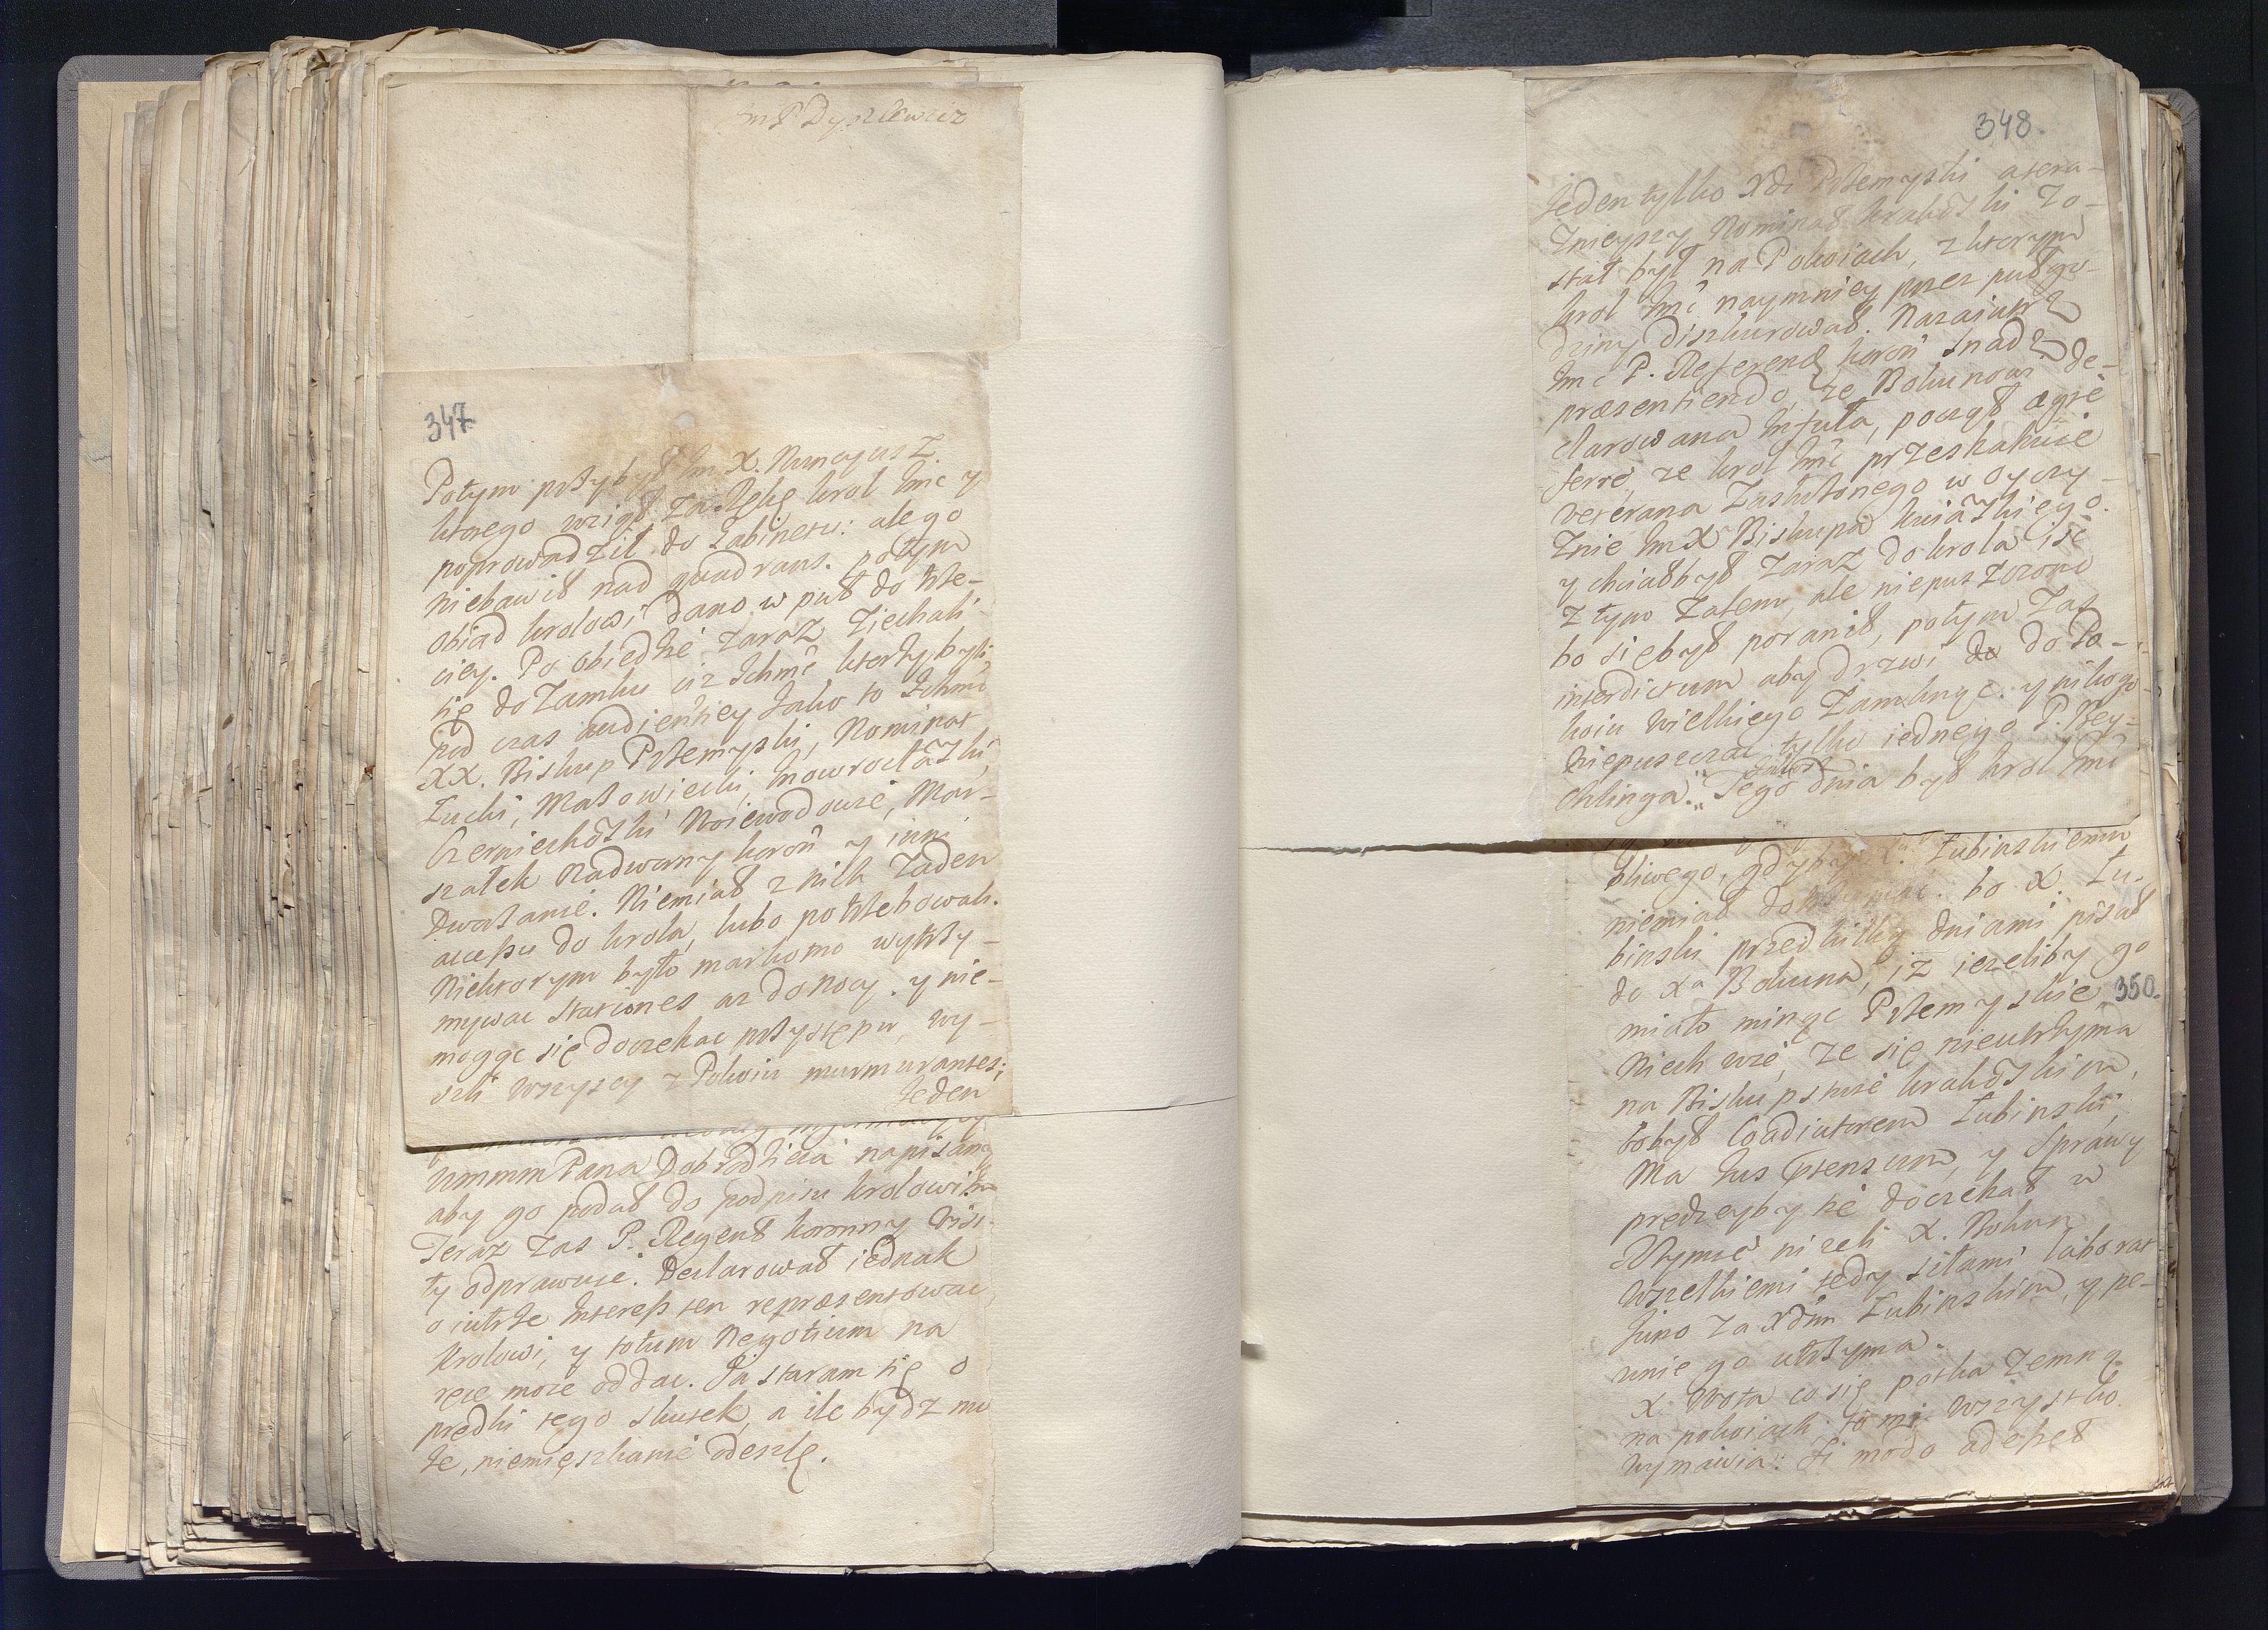 Dyszlewicz
347
Potym przybył Im X. Nuncyusz.
ktorego wziął za Rękę krol Imc y
poprowadził do Gabinetu: ale go
niebawił nad quadrans. potym
obiad krolowi dano w puł do trze-
ciey. Po obiedzie zaraz ziechali
się do Zamku ciz Ichmc ktorzy byli
pod czas audientiey Jako to Ichmc
XX. Biskup Przemyski, Nominat
Łucki, Mazowiecki, Inowrocłaski,
Czerniechoski Woiewodowie, Mar-
szałek Nadworny koron y inni
Dworzanie. Niemiał z nich Zaden
accessu do krola, lubo potrzebowali.
Niektorym było markotno wytrzy-
mywac stationes az do Nocy. y nie-
mogąc się doczekac przystępu, wy-
szli wszyscy z Pokoiu murmurantes;
Jeden
WmmmPana Dobrodzieia napisany
aby go podał do podpisu krolowi Im
Teraz zas P. Regent koronny Wizi-
ty odprawuie. Declarował iednak
o iutrze Interess ten repraesentowac
krolowi, y totum Negotium na
ręce moie oddac. Ja staram się o
prędki tego skutek, a ile bydz mo
ze, niemieszkanie odeszlę.
348.
Jeden tylko Xdz Przemyski a tera-
znieyszy Nominat krakoski zo-
stał był na Pokoiach, z ktorym
krol Imc naymniey przez puł go-
dziny diszkurował. Nazaiutrz
Imc P. Referend koron snadz
praesentiendo, ze Bokunowi de-
clarowana Infuła, począł aegre
ferre ze krol Imc przeskakuie
veterana Zasłużonego w Oyczy-
znie Im X Biskupa kuiaskiego.
y chciał był zaraz do krola isc
z tym zalem, ale niepuszczono
bo się był poranił, potym zas
interdictum aby drzwi do do Po-
koiu Wielkiego Zamknąc. y nikogo
niepuszczac tylko iednego P. Rey-
chlinga. Tego dnia był krol Imc
bliwego, gdyby X. Łubinskiemu
niemiał dotrzymac. bo X. Łu-
binski przed kilką dniami pisał
do Xa Bokuna, iz iezeliby go
miało minąc Przemyskie
350.
Niech wie, ze się nieutrzyma
na Biskupstwie krakoskim,
bo był Coadiutorem Łubinski,
Ma Ius Pretensum, y sprawy
prędzeyby się doczekał w
Rzymie nizeli X. Bokun
Wszelkiemi tedy siłami laborat
Juno za Xdzm Łubinskim, y pe-
wnie go utrzyma.
X. Wota co się potka zemną
na pokoiach to mi wszystko
wymawia: Si modo adesset